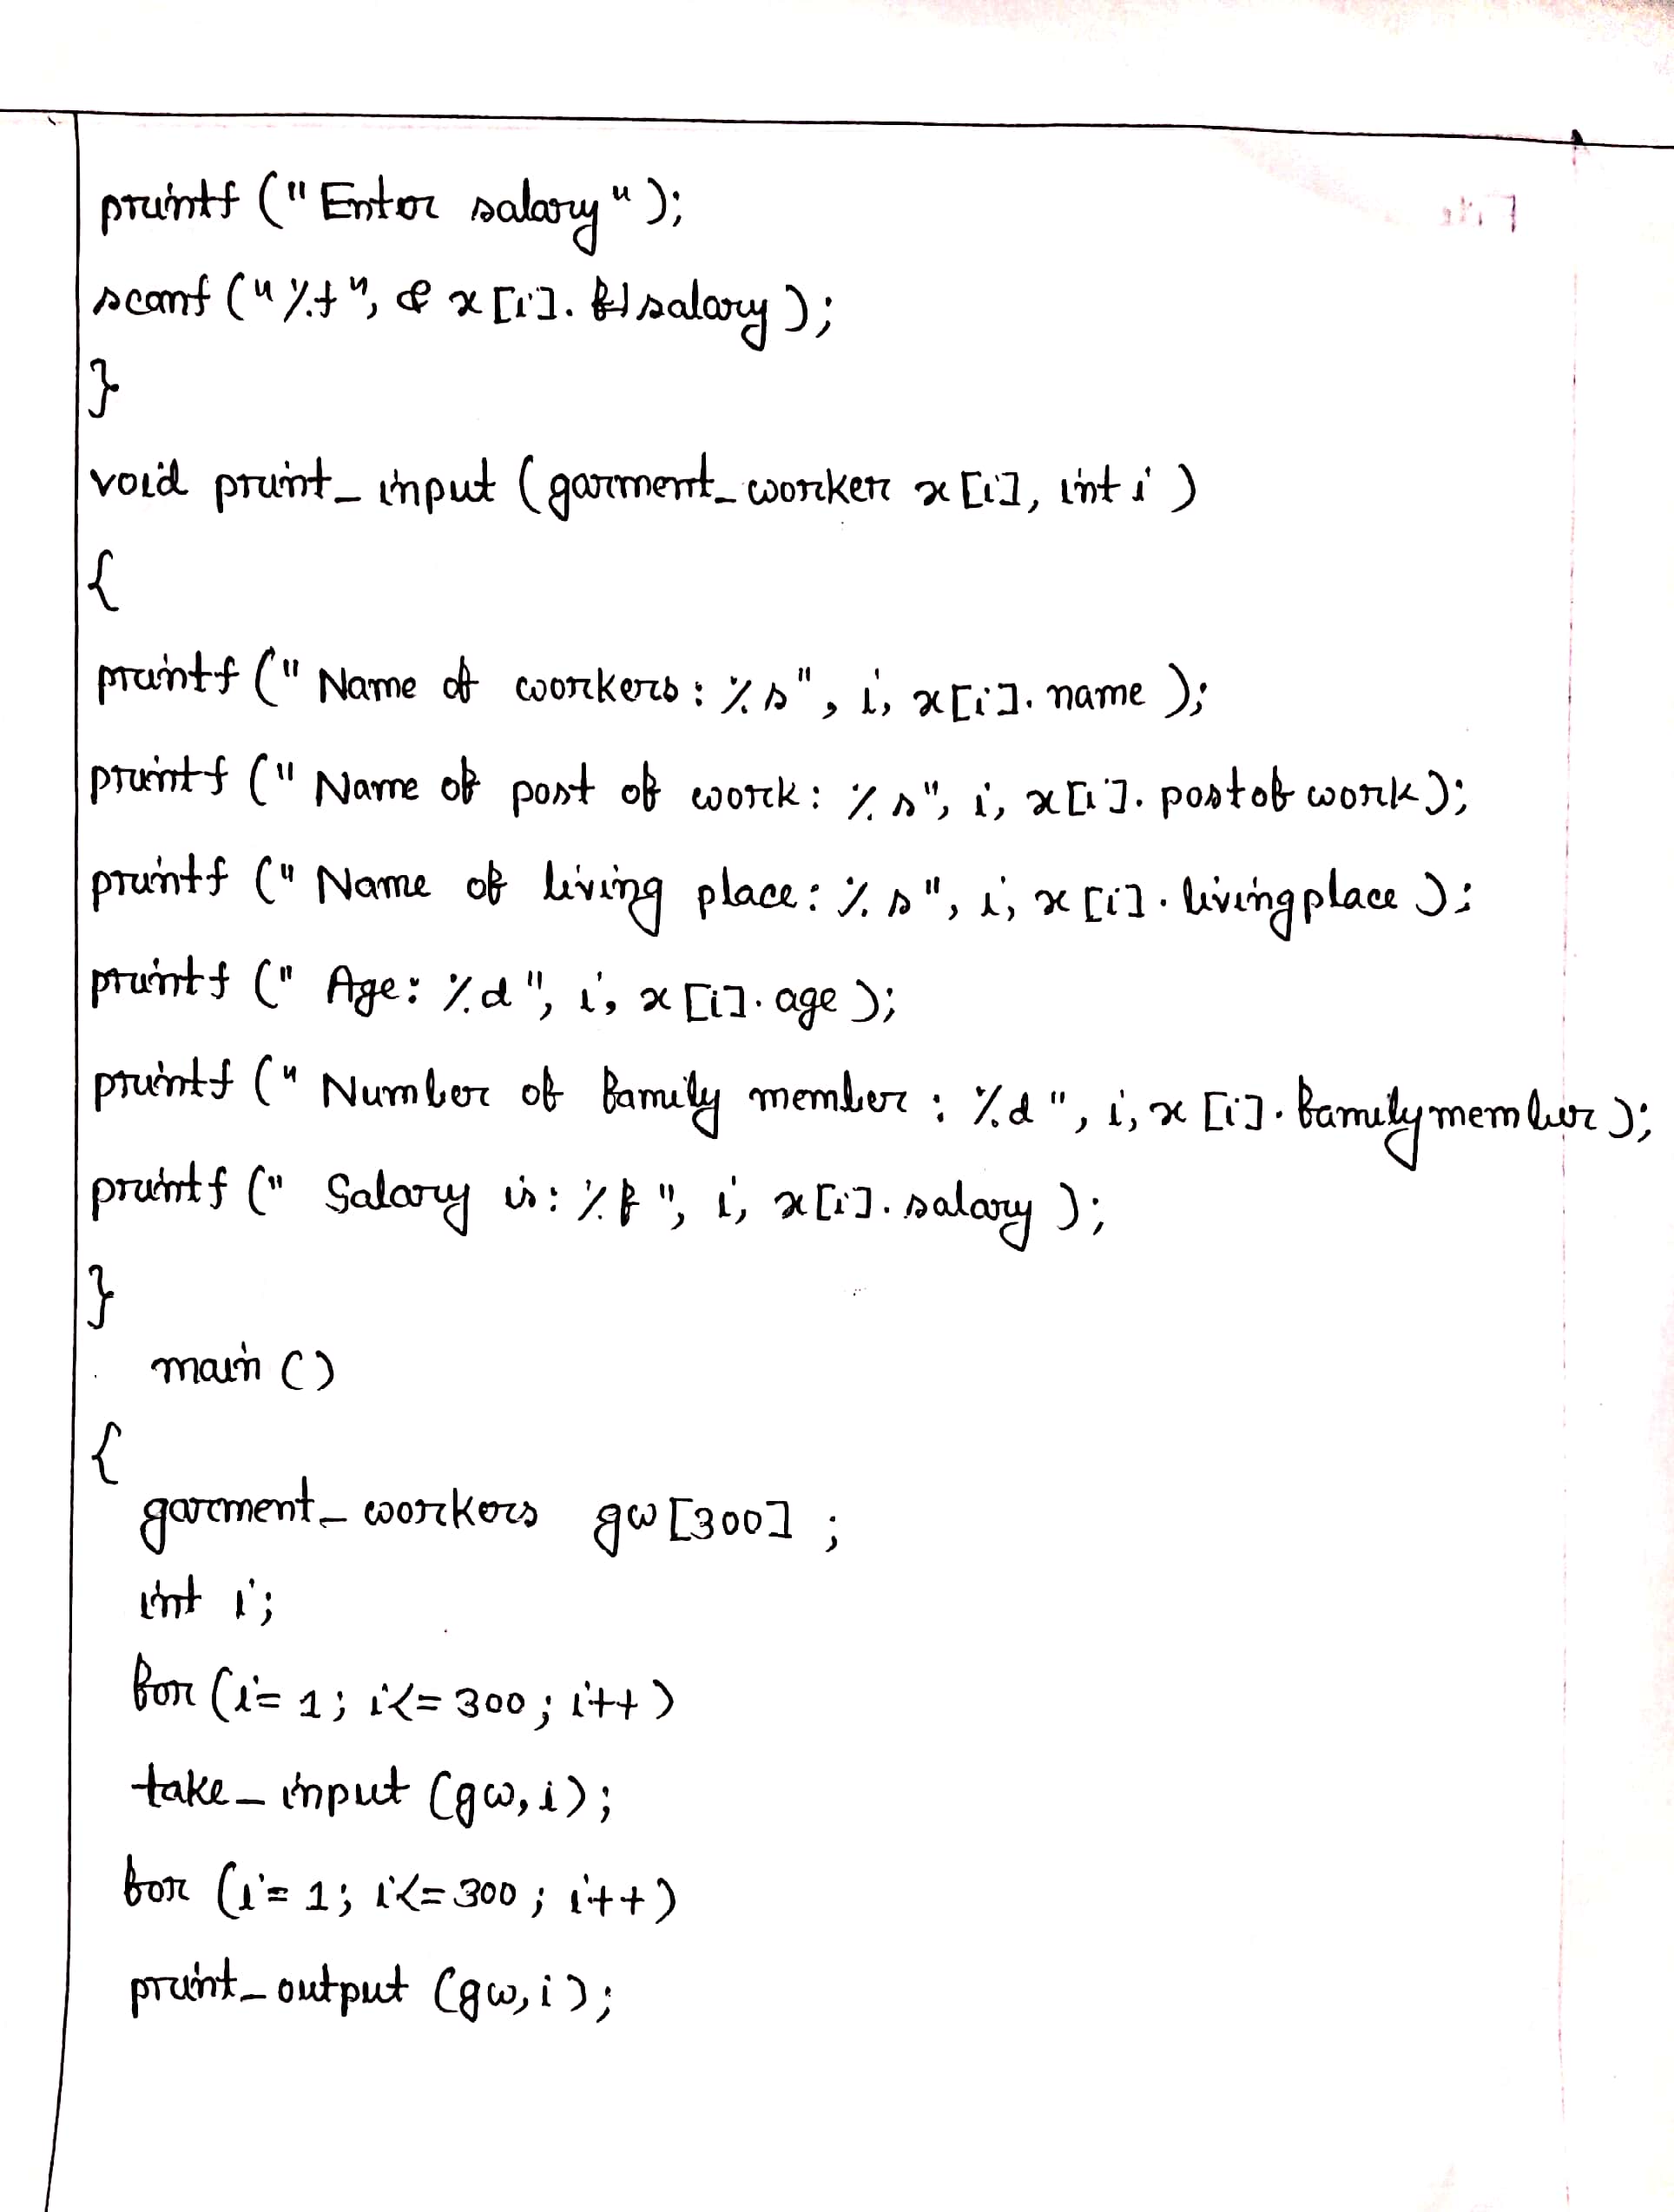 printf ("Enter salary");
scanf ("%f", & x[i]. salary);
}
void print_input (garment_worker x[i], int i)
{
printf (" Name of workers : %s", i, x[i]. name );
printf (" Name of post of work : %s", i, x[i]. postof work);
printf (" Name of living place : %s", i, x[i]. livingplace );
printf (" Age: %d", i, x[i]. age );
printf (" Number of family member : %d", i, x[i]. familymember );
printf (" Salary is : %f", i, x[i]. salary );
}
main ()
{
garment_workers gw[300] ;
int i;
for (i= 1; i<= 300 ; i++)
take_input (gw, i);
for (i= 1; i<= 300 ; i++)
print_output (gw, i);